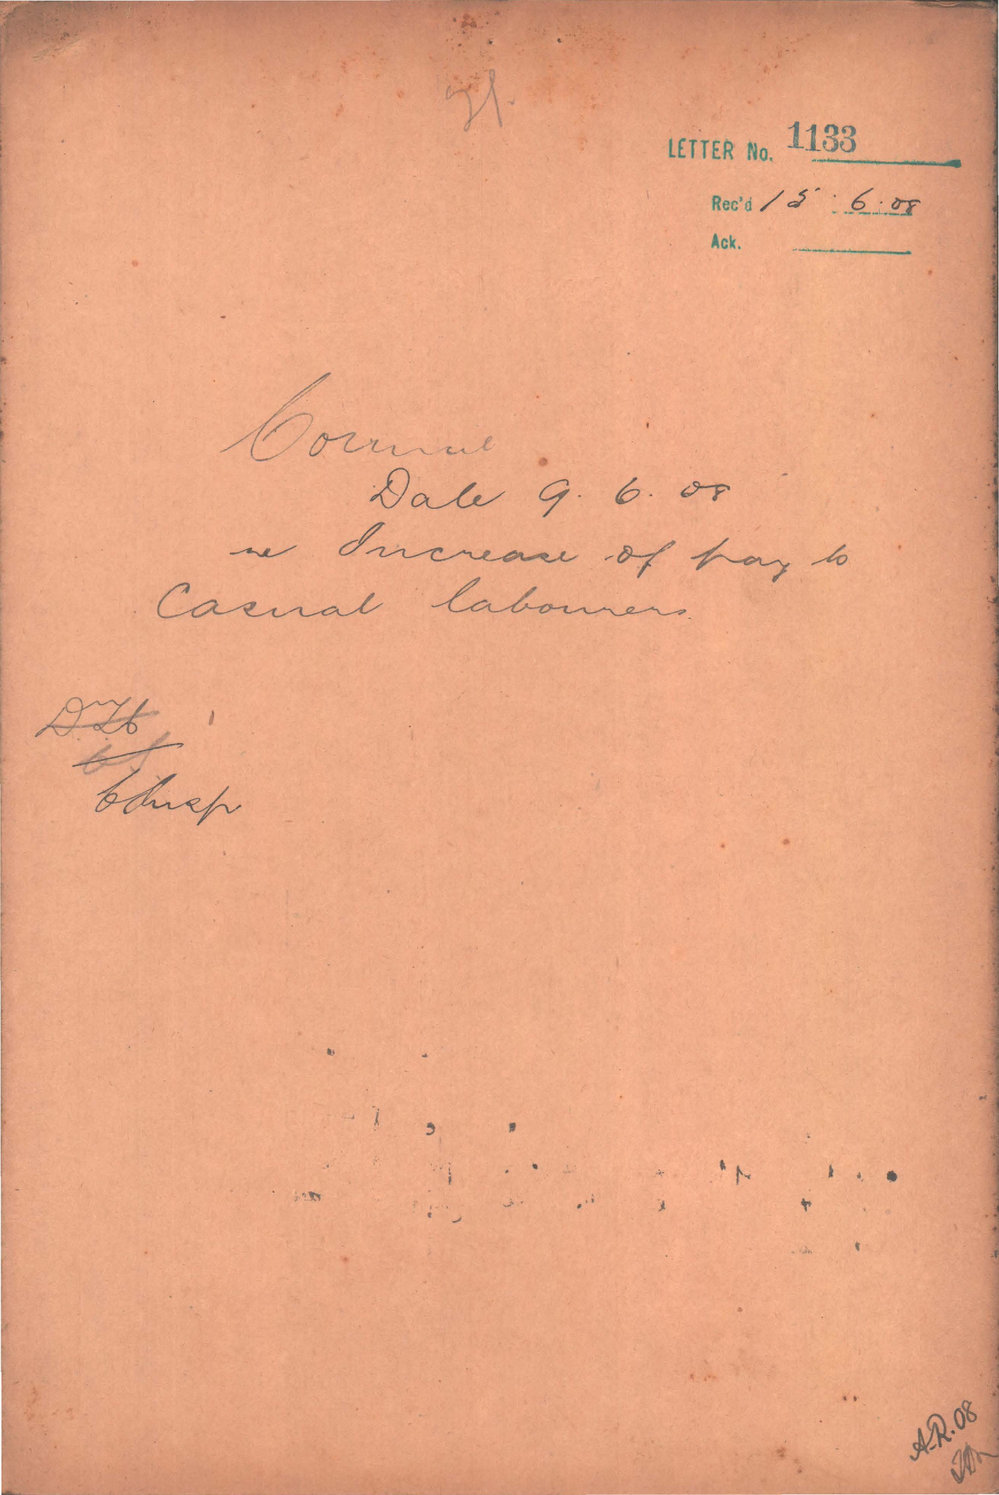 LETTER No. 1133
Rec'd 15.6.08
Ack.
Council
Date 9.6.08
re Increase of pay to
Casual labourers
A.R. 08